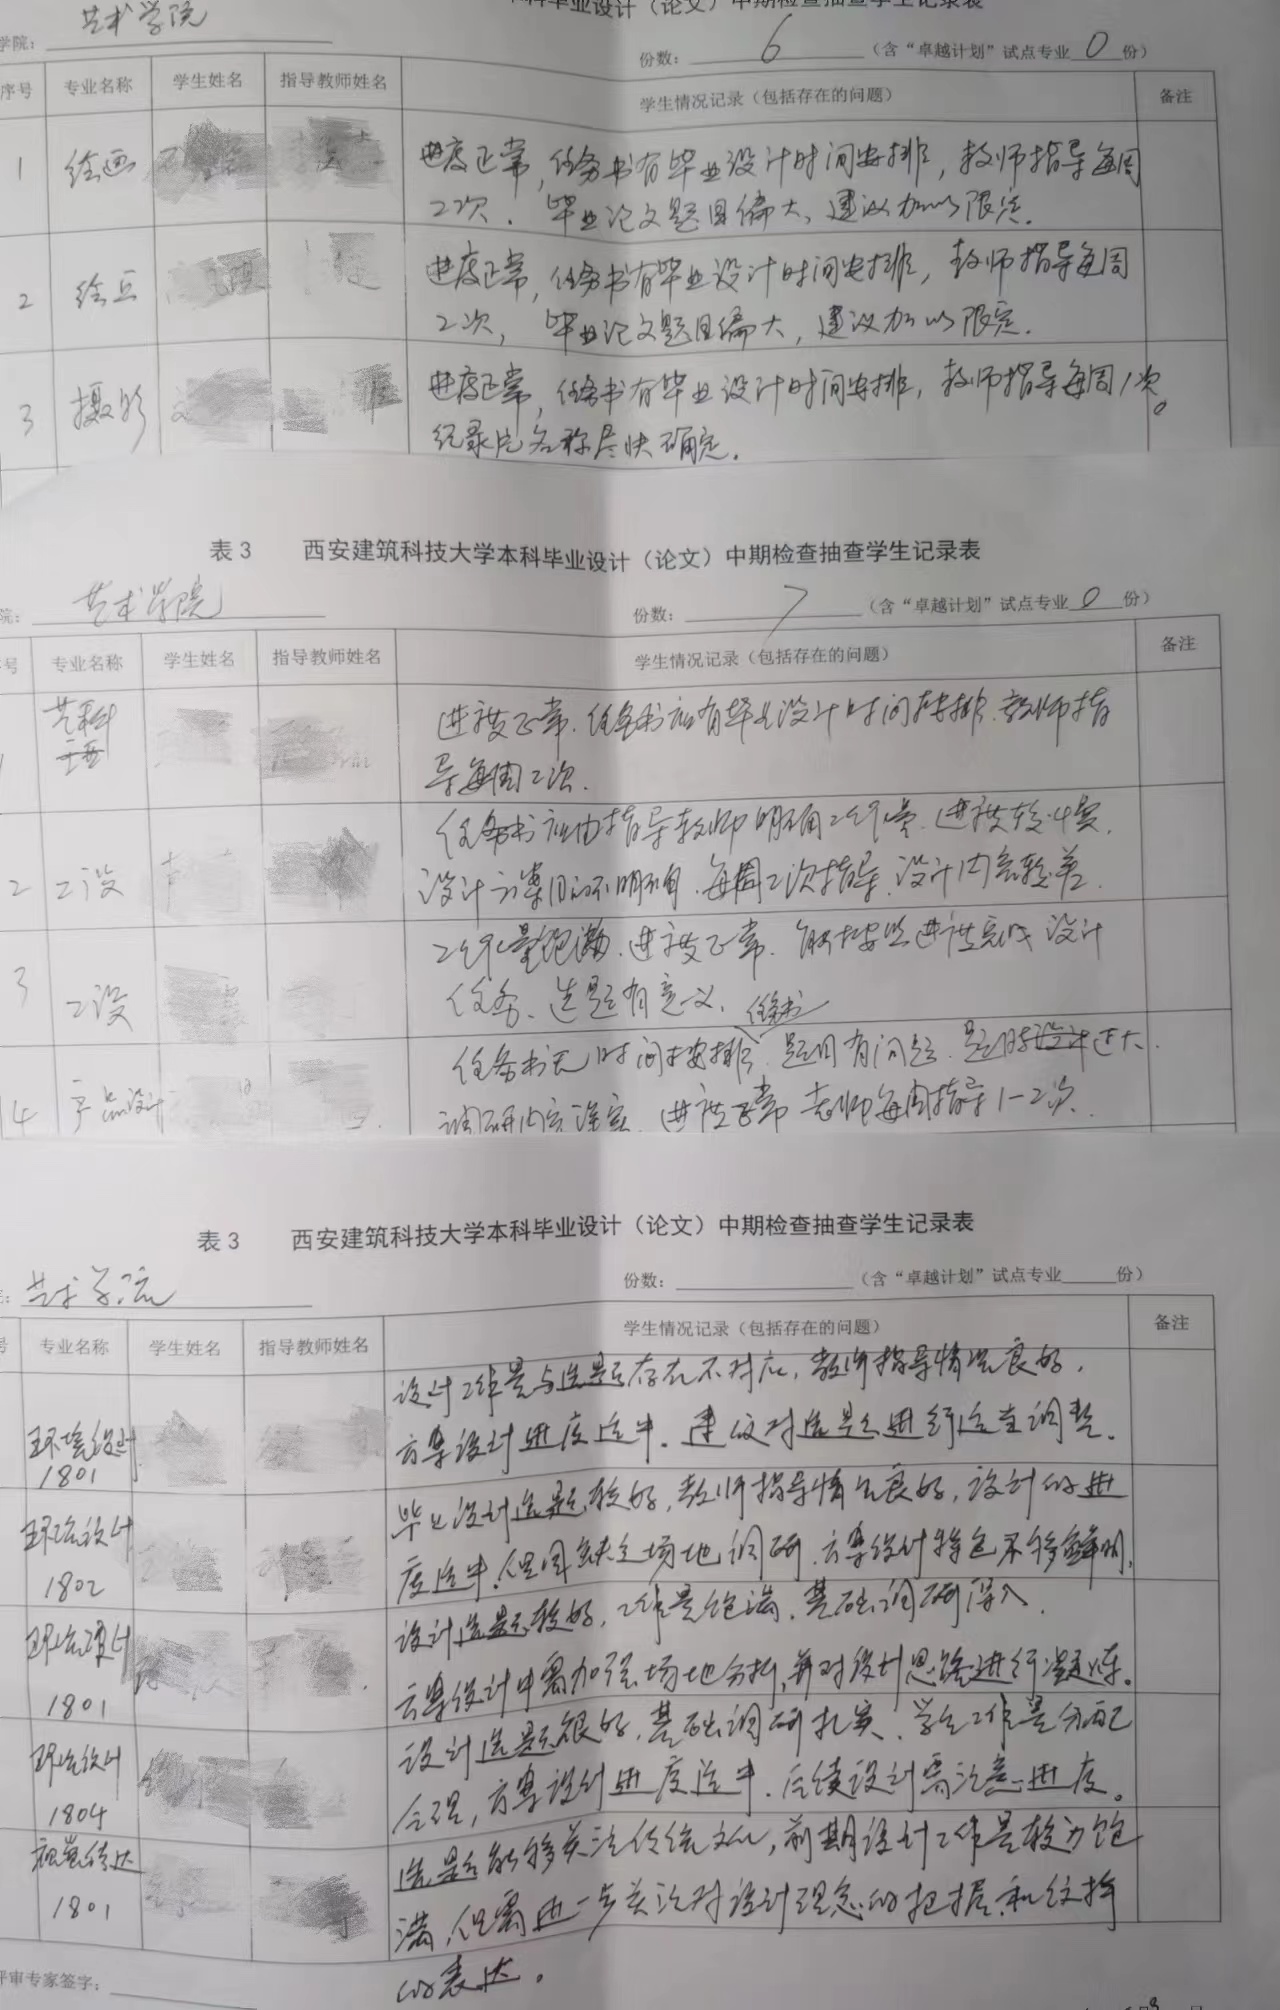 本科毕业设计（论文）中期检查抽查学生记录表
学院： 艺术学院
份数： 6 （含“卓越计划”试点专业 0 份）
序号 专业名称 学生姓名 指导教师姓名 学生情况记录（包括存在的问题） 备注
1 绘画 进度正常，任务书有毕业设计时间安排，教师指导每周
2次．毕业论文题目偏大，建议加以限定．
2 绘画 进度正常，任务书有毕业设计时间安排，教师指导每周
2次，毕业论文题目偏大，建议加以限定．
3 摄影 进度正常，任务书有毕业设计时间安排，教师指导每周1次。
纪录片名称尽快确定．
表 3 西安建筑科技大学本科毕业设计（论文）中期检查抽查学生记录表
院： 艺术学院
份数： 7 （含“卓越计划”试点专业 0 份）
号 专业名称 学生姓名 指导教师姓名 学生情况记录（包括存在的问题） 备注
1 艺科 进度正常．任务书应有毕业设计时间按排．教师指
导每周2次．
任务书应由指导教师明确工作量．进度较慢．
2 工设 设计方案目的不明确．每周2次指导．设计内容较差．
工作量饱满．进度正常．能按照进度完成设计
3 工设 任务．选题有意义．
任务书
任务书无时间按排．题目有问题．题目过大．
4 产品设计 调研内容详实．进度正常 老师每周指导1-2次．
表 3 西安建筑科技大学本科毕业设计（论文）中期检查抽查学生记录表
艺术学院
份数： （含“卓越计划”试点专业 份）
号 专业名称 学生姓名 指导教师姓名 学生情况记录（包括存在的问题） 备注
设计工作量与选题存在不对应，教师指导情况良好．
环境设计 方案设计进度适中．建议对选题进行适至调整．
1801
毕业设计选题较好，教师指导情况良好，设计的进
环境设计 度适中．但因缺乏场地调研．方案设计特色不够鲜明．
1802
设计选题较好，工作量饱满．基础调研深入．
环境设计 方案设计中需加强场地分析，并对设计思路进行凝练。
1801
设计选题很好，基础调研扎实．学生工作量分配
环境设计 合理，方案设计进度适中．后续设计需注意进度。
1804
视觉传达 选题能够关注传统文化，前期设计工作量较为饱
1801 满，但需进一步关注对设计理念的把握和纹样
的表达。
评审专家签字：